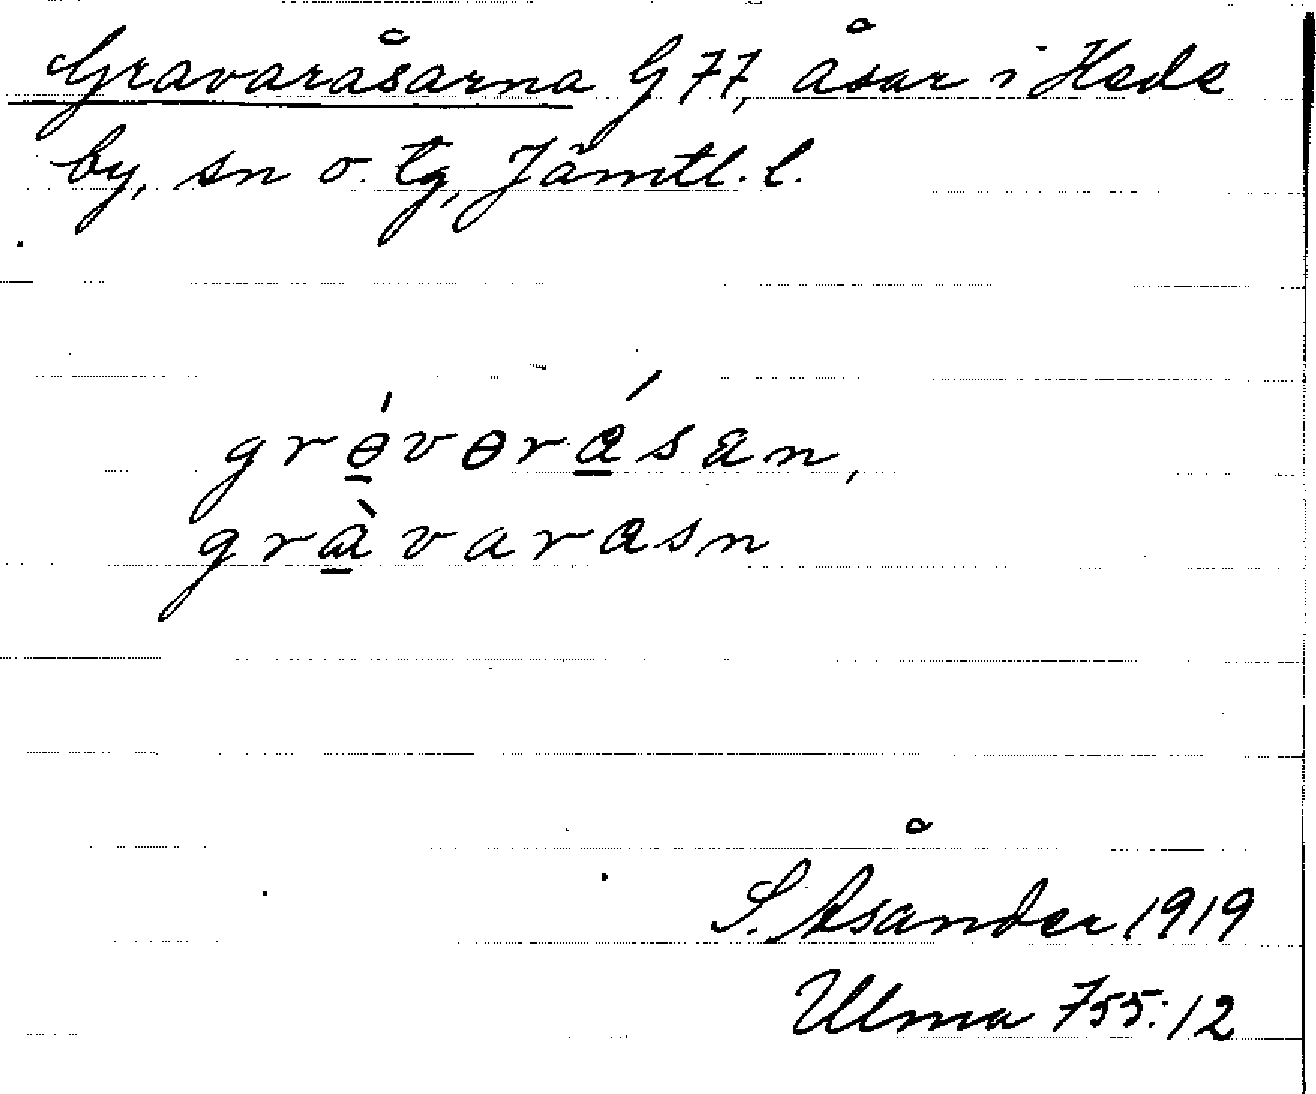 Gravaråsarna G 77, åsar i Hede
by, sn o. tg, Jämtl. l.
grə̱́vərá̱san,
grà̱varasn
S. Åsander 1919
Ulma 755:12